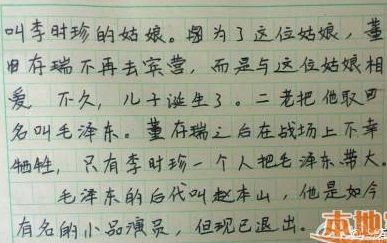 叫李时珍的姑娘。因为了这位姑娘，董
存瑞不再去宾营，而是与这位姑娘相
爱 不久，儿子诞生了。二老把他取
名叫毛泽东。董存瑞之后在战场上不幸
牺牲，只有李时珍一个人把毛泽东带大
毛泽东的后代叫赵本山，他是如今
有名的小品演员，但现已退出。
本地